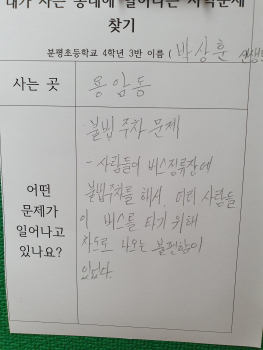 내가 사는 동네에 일어나는 지역문제
찾기
분평초등학교 4학년 3반 이름 ( 박상훈 선생님
사는 곳
용암동
어떤
문제가
일어나고
있나요?
· 불법 주차 문제
- 사람들이 버스정류장에
불법주차를 해서, 여러 사람들
이 버스를 타기 위해
차도로 나오는 불편함이
있었다.